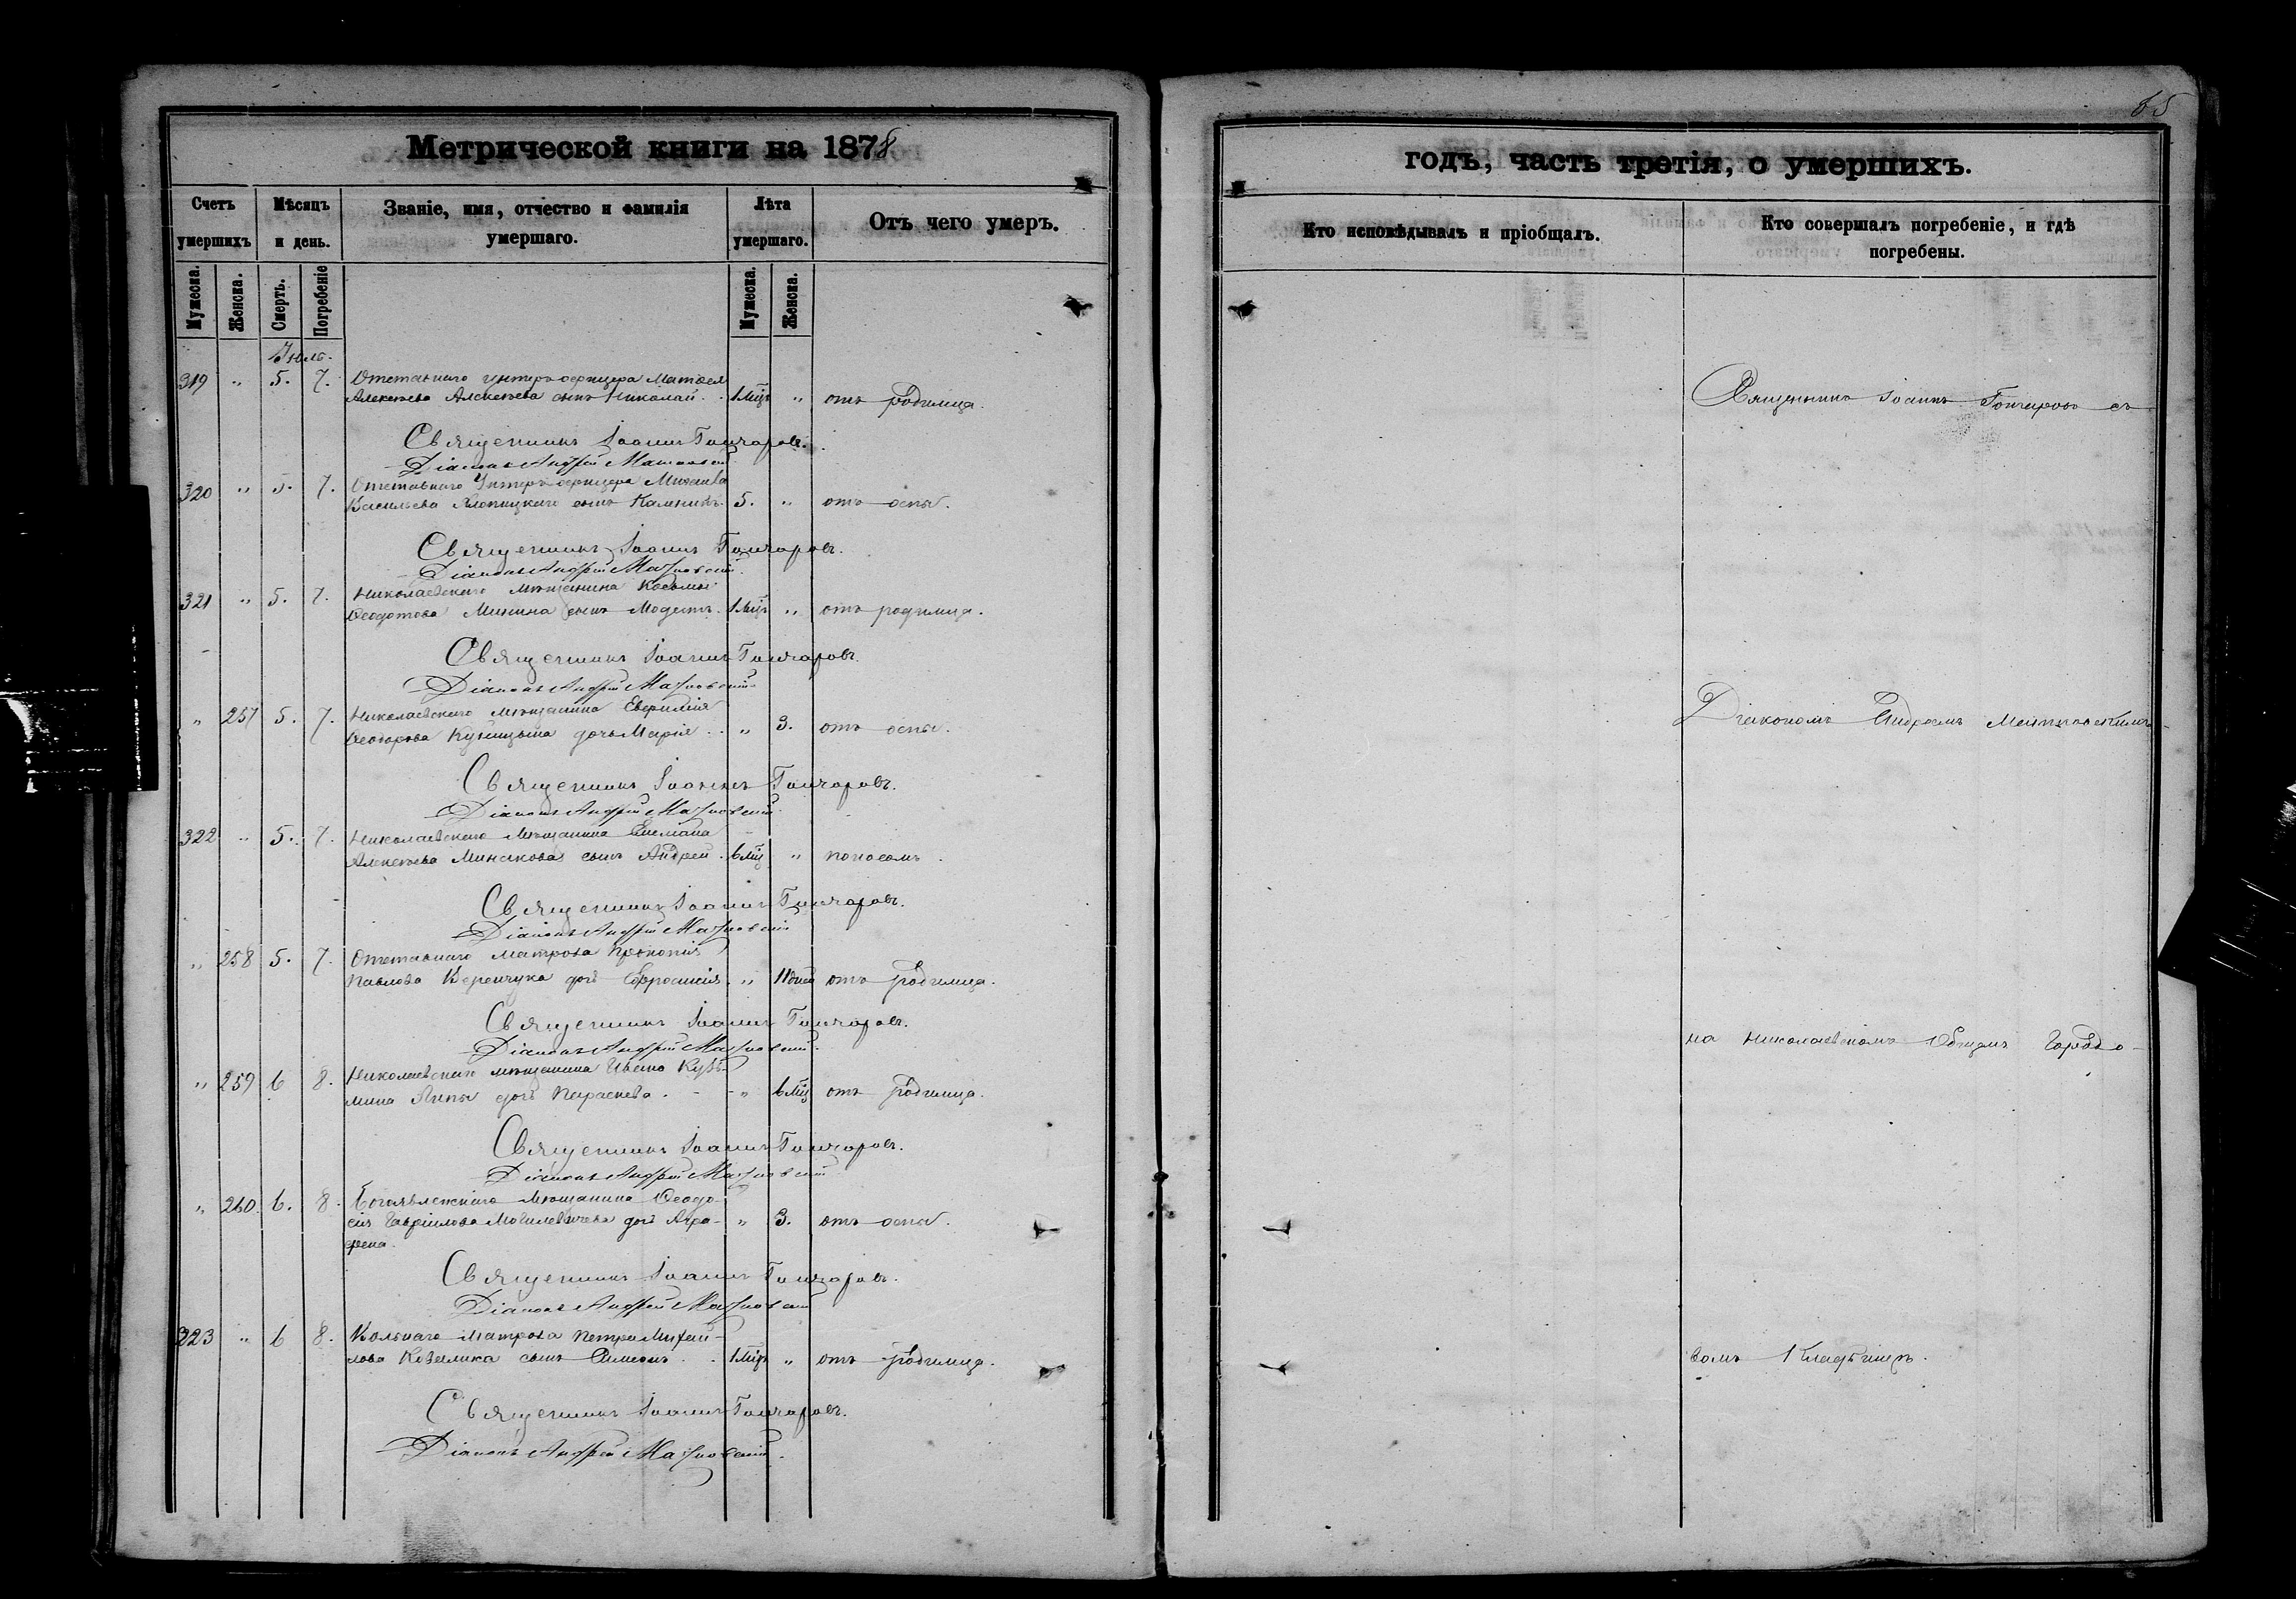 Метрической книги на 1878
Счетъ умершихъ
Мѣсяцъ и день.
Званіе, имя, отчество и фамилія умершаго.
Лѣта умершаго.
Отъ чего умеръ.
Мужеска. Женска. Смерть. Погребеніе Мужеска. Женска.
Іюль.
319 " 5. 7. Отставнаго унтеръ-офицера Матвея
Алексѣева Алексѣева сынъ Николай. 1 мцъ " отъ родимца.
Священникъ Іоаннъ Гончаровъ.
Діаконъ Андрей
320 " 5. 7. Отставнаго Унтеръ-офицера Михаила
Васильева сынъ 5. " отъ оспы.
Священникъ Іоаннъ Гончаровъ.
Діаконъ Андрей
321 " 5. 7. Николаевскаго мѣщанина Косьмы
Ѳеодотова Минина сынъ Модестъ. 1 мцъ " отъ родимца.
Священникъ Іоаннъ Гончаровъ.
Діаконъ Андрей
" 257 5. 7. Николаевскаго мѣщанина Евфимія
Ѳеодорова дочь Марія. " 3. отъ оспы.
Священникъ Іоаннъ Гончаровъ.
Діаконъ Андрей
322 " 5. 7. Николаевскаго мѣщанина
Алексѣева Минакова сынъ Андрей. 6 мц " поносомъ.
Священникъ Іоаннъ Гончаровъ.
Діаконъ Андрей
" 258 5. 7. Отставнаго матроса Прокопія
Павлова дочь Евфросинія. " 11 дней отъ родимца.
Священникъ Іоаннъ Гончаровъ.
Діаконъ Андрей
" 259 6 8. Николаевскаго мѣщанина Ивана Кузь-
мина Липы дочь Параскева. " 6 мц отъ родимца.
Священникъ Іоаннъ Гончаровъ.
Діаконъ Андрей
" 260. 6. 8. Богоявленскаго мѣщанина Ѳеодо-
сія Гавриилова дочь Агра- " 3. отъ оспы.
фена.
Священникъ Іоаннъ Гончаровъ.
Діаконъ Андрей
323 " 6 8. Вольнаго матроса Петра Михай-
лова сынъ Симеонъ. 1 мцъ " отъ родимца.
Священникъ Іоаннъ Гончаровъ.
Діаконъ Андрей
65
годъ, часть третія, о умершихъ.
Кто исповѣдывалъ и пріобщалъ.
Кто совершалъ погребеніе, и гдѣ погребены.
Священникъ Іоаннъ Гончаровъ съ
Діакономъ Андреемъ
на Николаевскомъ Общемъ Городо-
вомъ Кладбищѣ.